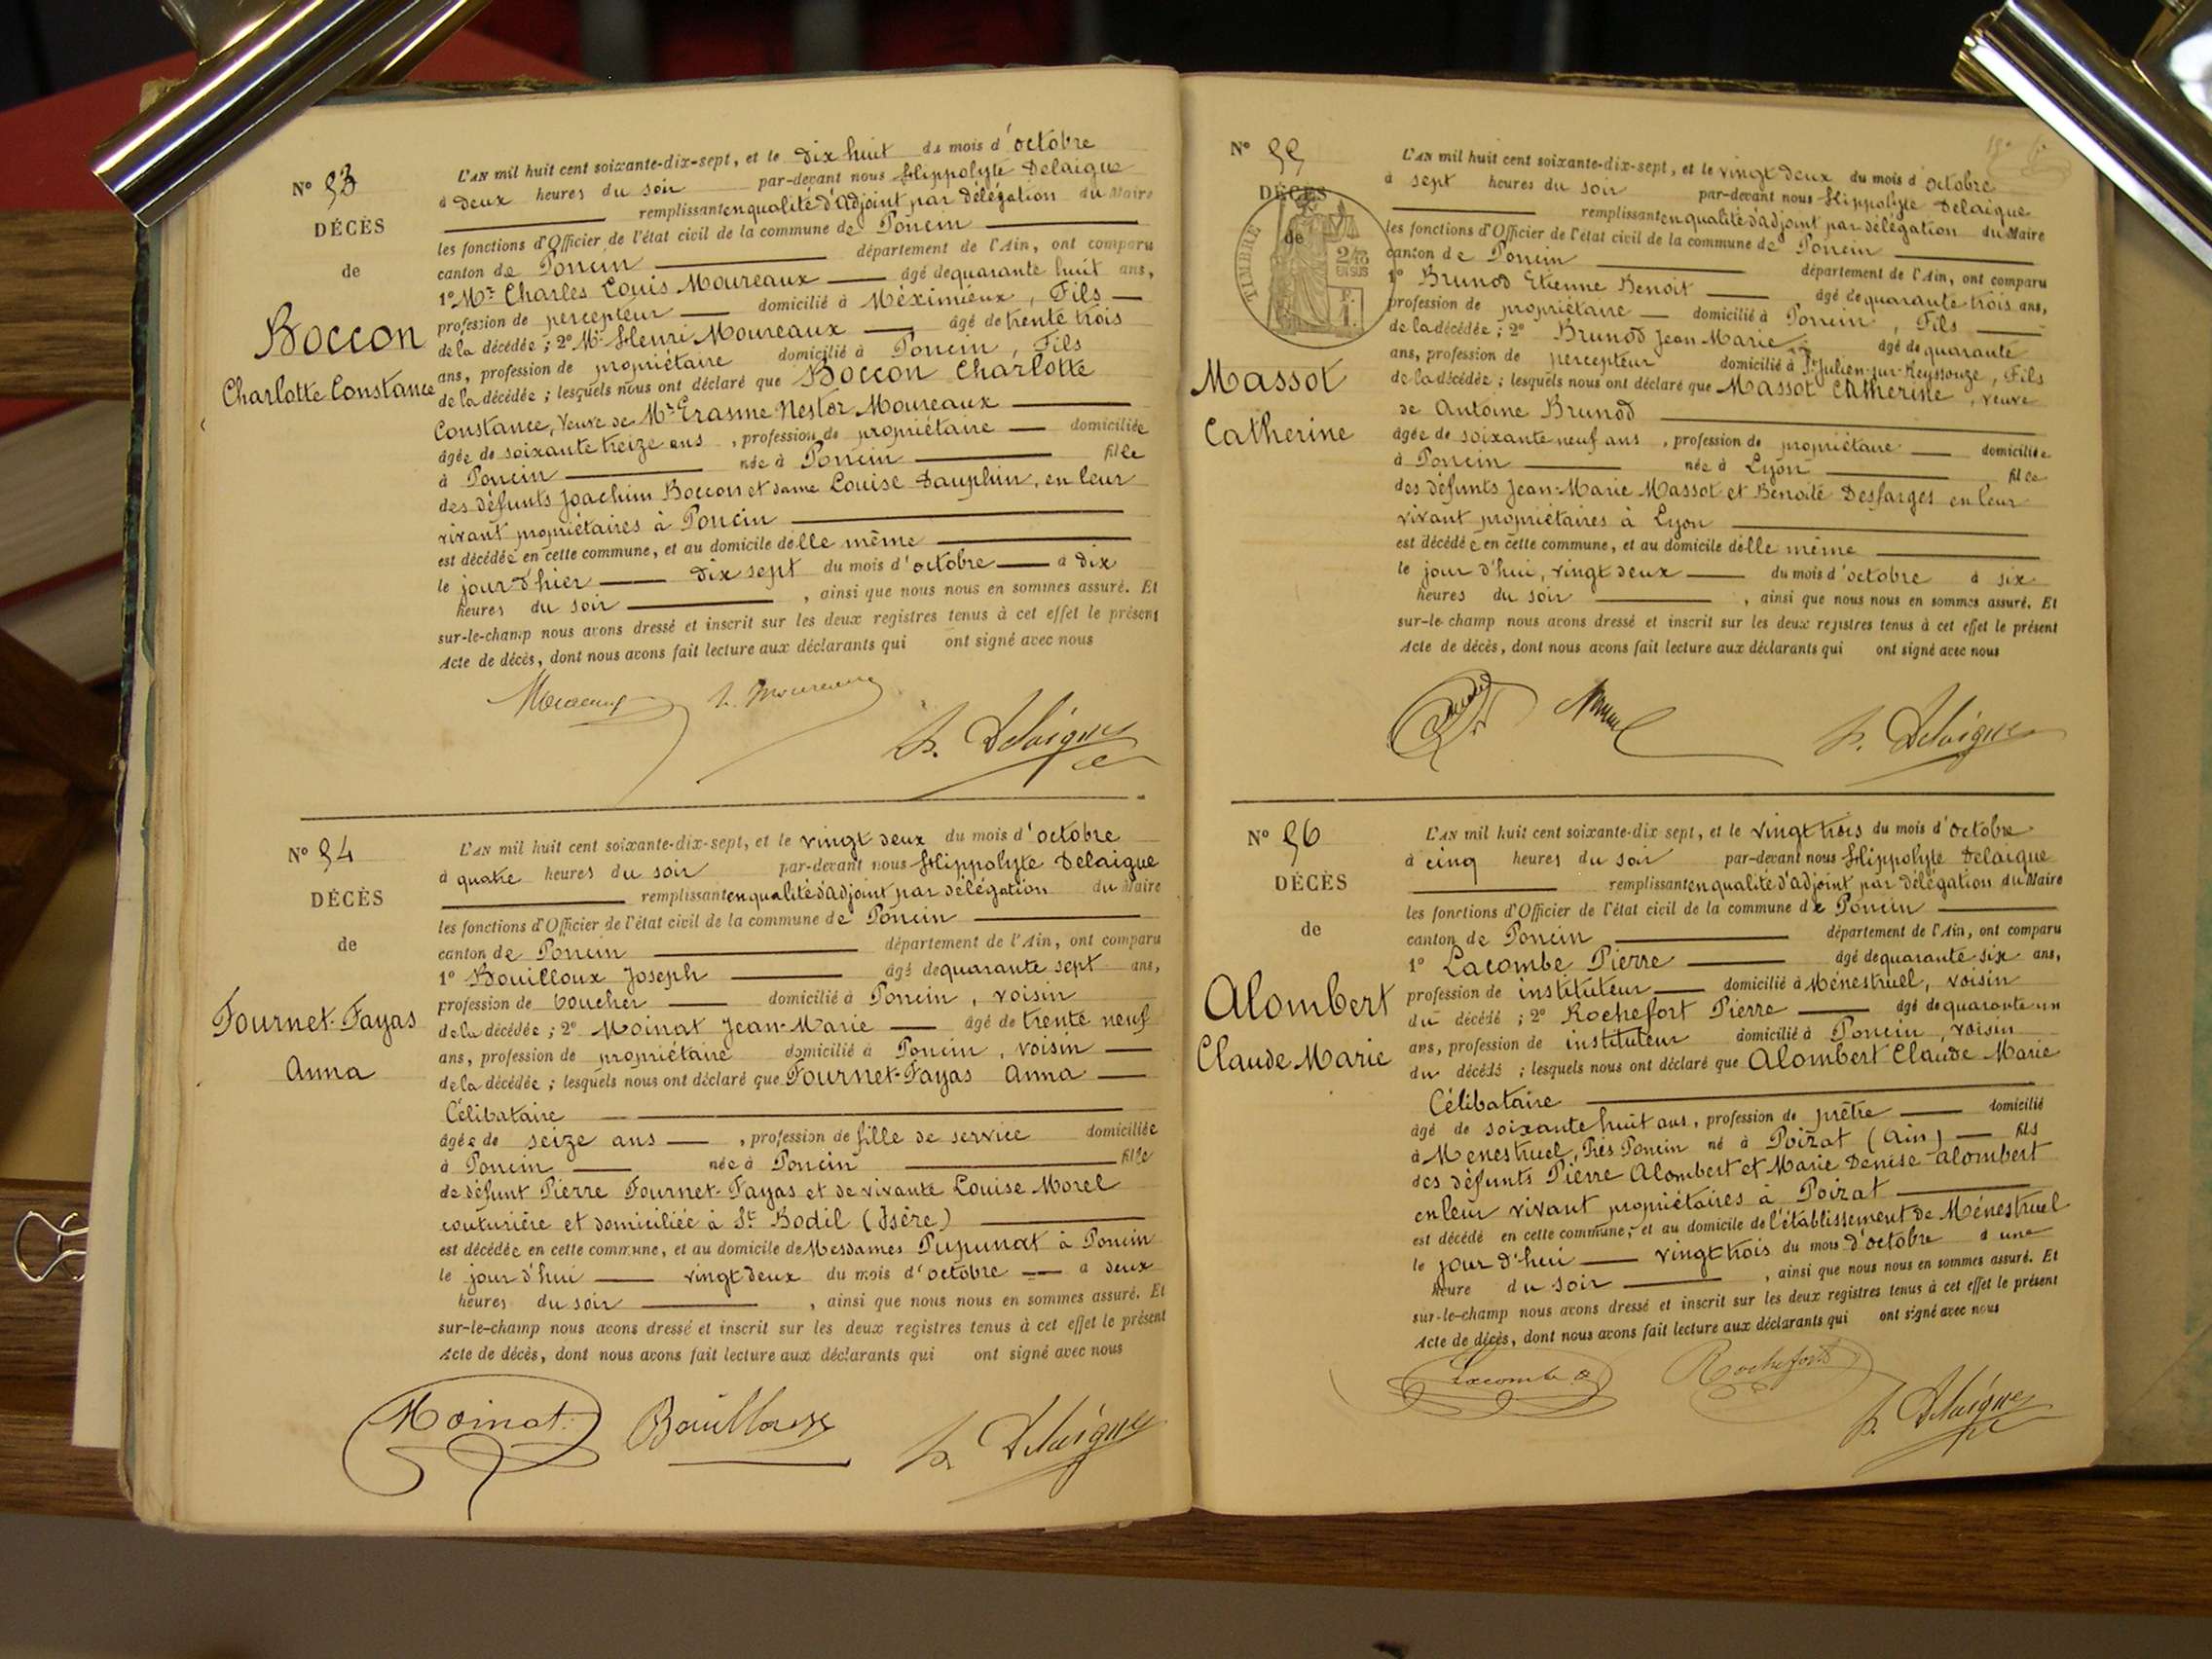 N° 53
DÉCÈS
de
Boccon
Charlotte Constance
L'AN mil huit cent soixante-dix-sept, et le dix huit du mois d'octobre
à deux heures du soir par-devant nous Hippolyte Delaigue
remplissant en qualité d'adjoint par délégation du Maire
les fonctions d'Officier de l'état civil de la commune de Poncin
canton de Poncin département de l'Ain, ont comparu
1° Mr Charles Louis Moureaux âgé de quarante huit ans,
profession de percepteur domicilié à Méximieux, Fils
de la décédée ; 2° Mr Henri Moureaux âgé de trente trois
ans, profession de propriétaire domicilié à Poncin, Fils
de la décédée ; lesquels nous ont déclaré que Boccon Charlotte
Constance, Veuve de Mr Erasme Nestor Moureaux
âgée de soixante treize ans, profession de propriétaire domiciliée
à Poncin née à Poncin fille
des défunts Joachim Boccon et dame Louise Dauphin, en leur
vivant propriétaires à Poncin
est décédée en cette commune, et au domicile d'elle même
le jour d'hier dix sept du mois d'octobre à dix
heures du soir, ainsi que nous nous en sommes assuré. Et
sur-le-champ nous avons dressé et inscrit sur les deux registres tenus à cet effet le présent
Acte de décès, dont nous avons fait lecture aux déclarants qui ont signé avec nous
Moureaux h. Moureaux h. Delaigue
N° 54
DÉCÈS
de
Fournet-Fayas
Anna
L'AN mil huit cent soixante-dix-sept, et le vingt deux du mois d'octobre
à quatre heures du soir par-devant nous Hippolyte Delaigue
remplissant en qualité d'adjoint par délégation du Maire
les fonctions d'Officier de l'état civil de la commune de Poncin
canton de Poncin département de l'Ain, ont comparu
1° Bouilloux Joseph âgé de quarante sept ans,
profession de boucher domicilié à Poncin, voisin
de la décédée ; 2° Moinat Jean-Marie âgé de trente neuf
ans, profession de propriétaire domicilié à Poncin, voisin
de la décédée ; lesquels nous ont déclaré que Fournet-Fayas Anna
Célibataire
âgée de seize ans, profession de fille de service domiciliée
à Poncin née à Poncin fille
de défunt Pierre Fournet-Fayas et de vivante Louise Morel
couturière et domiciliée à St Bodil (Isère)
est décédée en cette commune, et au domicile de Mesdames Pupunat à Poncin
le jour d'hui vingt deux du mois d'octobre à deux
heures du soir, ainsi que nous nous en sommes assuré. Et
sur-le-champ nous avons dressé et inscrit sur les deux registres tenus à cet effet le présent
Acte de décès, dont nous avons fait lecture aux déclarants qui ont signé avec nous
Moinat Bouilloux h. Delaigue
N° 55
DÉCÈS
de
TIMBRE
2/10
EN SUS
Massot
Catherine
L'AN mil huit cent soixante-dix-sept, et le vingt deux du mois d'octobre
à sept heures du soir par-devant nous Hippolyte Delaigue
remplissant en qualité d'adjoint par délégation du Maire
les fonctions d'Officier de l'état civil de la commune de Poncin
canton de Poncin département de l'Ain, ont comparu
1° Brunod Etienne Benoit âgé de quarante trois ans,
profession de propriétaire domicilié à Poncin, Fils
de la décédée ; 2° Brunod Jean Marie âgé de quarante
ans, profession de percepteur domicilié à St Julien-sur-Reyssouze, Fils
de la décédée ; lesquels nous ont déclaré que Massot Catherine, veuve
de Antoine Brunod
âgée de soixante neuf ans, profession de propriétaire domiciliée
à Poncin née à Lyon fille
des défunts Jean-Marie Massot et Benoite Desfarges en leur
vivant propriétaires à Lyon
est décédée en cette commune, et au domicile d'elle même
le jour d'hui, vingt deux du mois d'octobre à six
heures du soir, ainsi que nous nous en sommes assuré. Et
sur-le-champ nous avons dressé et inscrit sur les deux registres tenus à cet effet le présent
Acte de décès, dont nous avons fait lecture aux déclarants qui ont signé avec nous
h. Delaigue
N° 56
DÉCÈS
de
Alombert
Claude Marie
L'AN mil huit cent soixante-dix sept, et le vingt trois du mois d'octobre
à cinq heures du soir par-devant nous Hippolyte Delaigue
remplissant en qualité d'adjoint par délégation du Maire
les fonctions d'Officier de l'état civil de la commune de Poncin
canton de Poncin département de l'Ain, ont comparu
1° Lacombe Pierre âgé de quarante six ans,
profession de instituteur domicilié à Ménestruel, voisin
du décédé ; 2° Rochefort Pierre âgé de quarante un
ans, profession de instituteur domicilié à Poncin, voisin
du décédé ; lesquels nous ont déclaré que Alombert Claude Marie
Célibataire
âgé de soixante huit ans, profession de prêtre domicilié
à Menestruel, Près Poncin né à Poizat (Ain) fils
des défunts Pierre Alombert et Marie Denise Alombert
en leur vivant propriétaires à Poizat
est décédé en cette commune, et au domicile de l'établissement de Ménestruel
le jour d'hui vingt trois du mois d'octobre à une
heure du soir, ainsi que nous nous en sommes assuré. Et
sur-le-champ nous avons dressé et inscrit sur les deux registres tenus à cet effet le présent
Acte de décès, dont nous avons fait lecture aux déclarants qui ont signé avec nous
Lacombe Rochefort h. Delaigue